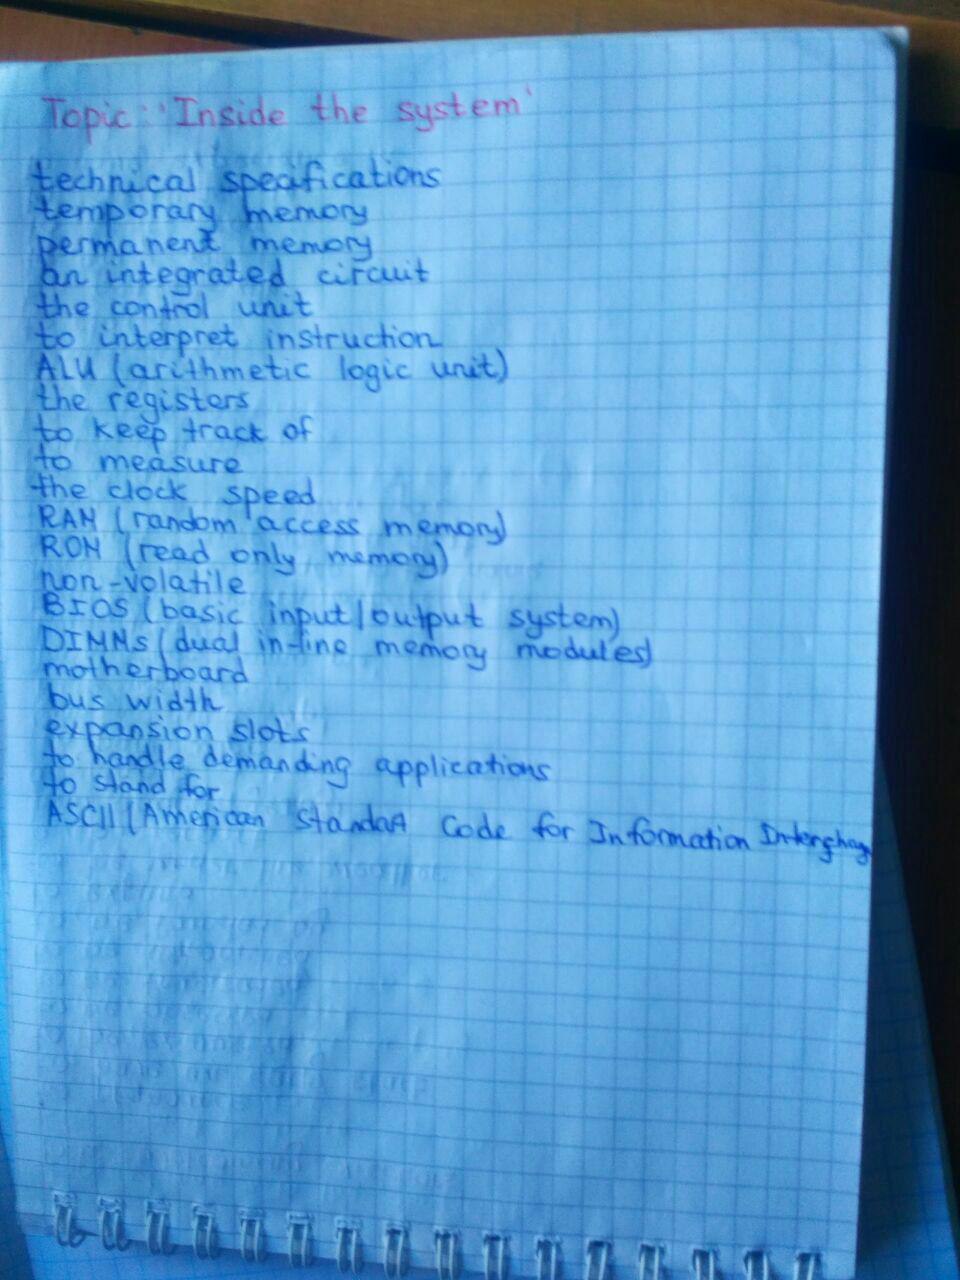 Topic: 'Inside the system'
technical specifications
temporary memory
permanent memory
an integrated circuit
the control unit
to interpret instruction
ALU (arithmetic logic unit)
the registers
to keep track of
to measure
the clock speed
RAM (random access memory)
ROM (read only memory)
non-volatile
BIOS (basic input/output system)
DIMMs (dual in-line memory modules)
motherboard
bus width
expansion slots
to handle demanding applications
to stand for
ASCII (American Code for Information